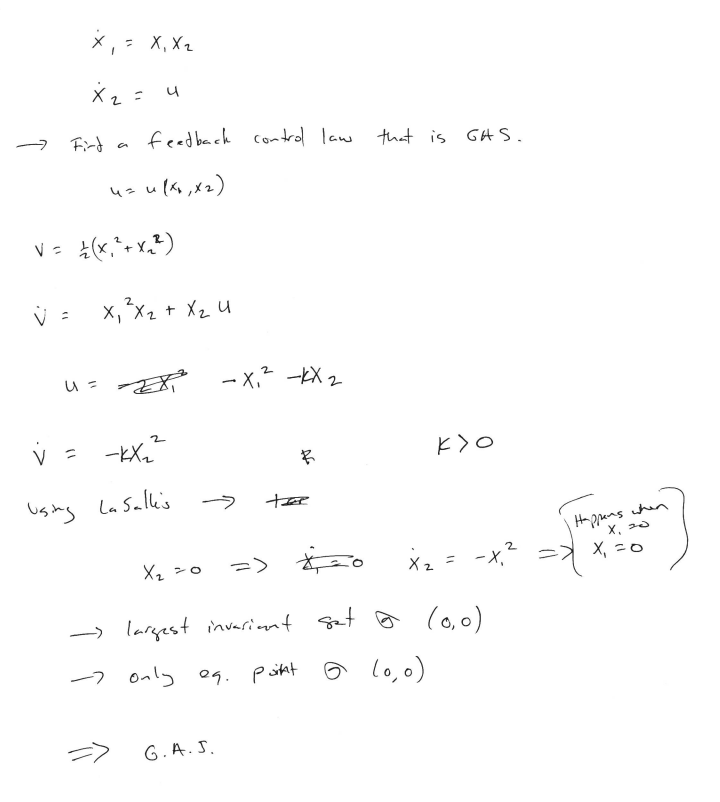 ẋ₁ = x₁x₂
ẋ₂ = u
→ Find a feedback control law that is GAS.
u = u(x₁,x₂)
V = ½(x₁² + x₂²)
V̇ = x₁²x₂ + x₂u
u = -x₁² -kx₂
V̇ = -kx₂² k>0
Using LaSalle's →
x₂=0 => ẋ₂ = -x₁² => (Happens when x₁=0 x₁=0)
→ largest invariant set @ (0,0)
→ only eq. point @ (0,0)
=> G.A.S.